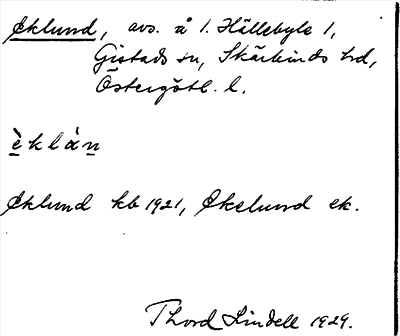 Eklund, avs. å 1. Hällebyle 1,
Gistads sn, Skärkinds hd,
Östergötl. l.
èklàn
Eklund kb 1921, Ekelund ek.
Thord Lindell 1929.